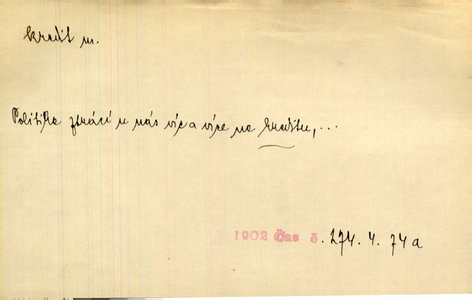 kredit m.
Politika ztrácí u nás víc a více na kreditu,...
1902 Čas č. 274. 4. 74 a